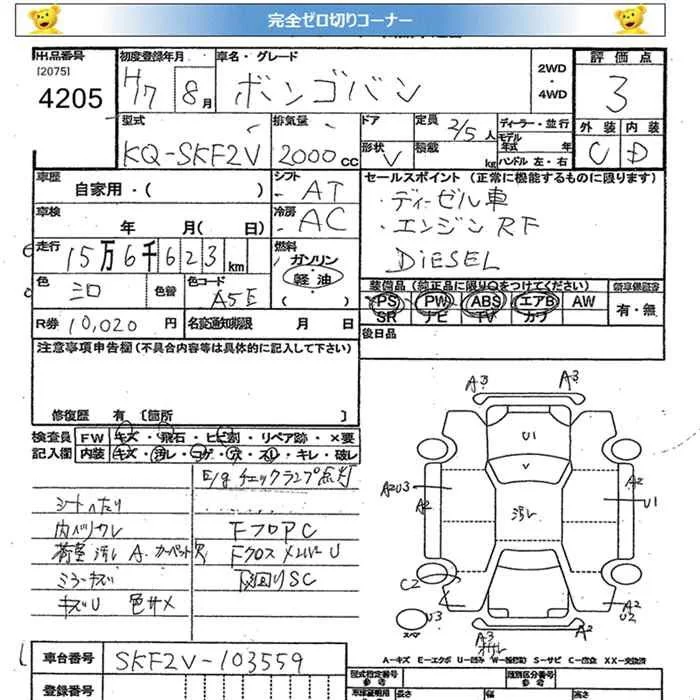 完全ゼロ切りコーナー
出品番号
[2075]
4205
初度登録年月
H7 8月
車名・グレード
ボンゴバン
2WD
・
4WD
評価点
3
型式
KQ-SKF2V
排気量
2000cc
ドア
形状 V
定員 2/5人
積載 kg
ディーラー・並行
モデル
年式 年
ハンドル 左・右
外装 内装
C D
車歴
自家用・( )
シフト
AT
セールスポイント (正常に機能するものに限ります)
・ディーゼル車
・エンジンRF
DIESEL
車検
年 月( 日)
冷房
AC
走行
15万6千623km
燃料
ガソリン
軽油
( )
色
シロ
色替
色コード
A5E
装備品(純正品に限り○をつけてください)
PS PW ABS エアB AW
SR ナビ TV カワ
有・無
R券 10,020円
名変通知期限 月 日
後日品
注意事項申告欄(不具合内容等は具体的に記入して下さい)
修復歴 有 [箇所 ]
検査員
記入欄
FW キズ・飛石・ヒビ割・リペア跡・×要
内装 キズ・汚レ・コゲ・穴・スレ・キレ・破レ
E/gチェックランプ点灯
シートへたり
内ハリワレ FフロアC
荷室汚レ A.カーペット穴 FクロスメンバーU
ミラーキズ 下回りSC
キズU 色サメ
A3 A3
U1
V
A2U3
A2
汚レ
A2
U1
C2
U3
スペア
A2
U2
A3
A2
A-キズ E-エクボ U-凹ミ W-補修跡 S-サビ C-腐食 XX-交換済
車台番号
SKF2V-103559
登録番号
型式指定番号
類別区分番号
長さ
幅
高さ